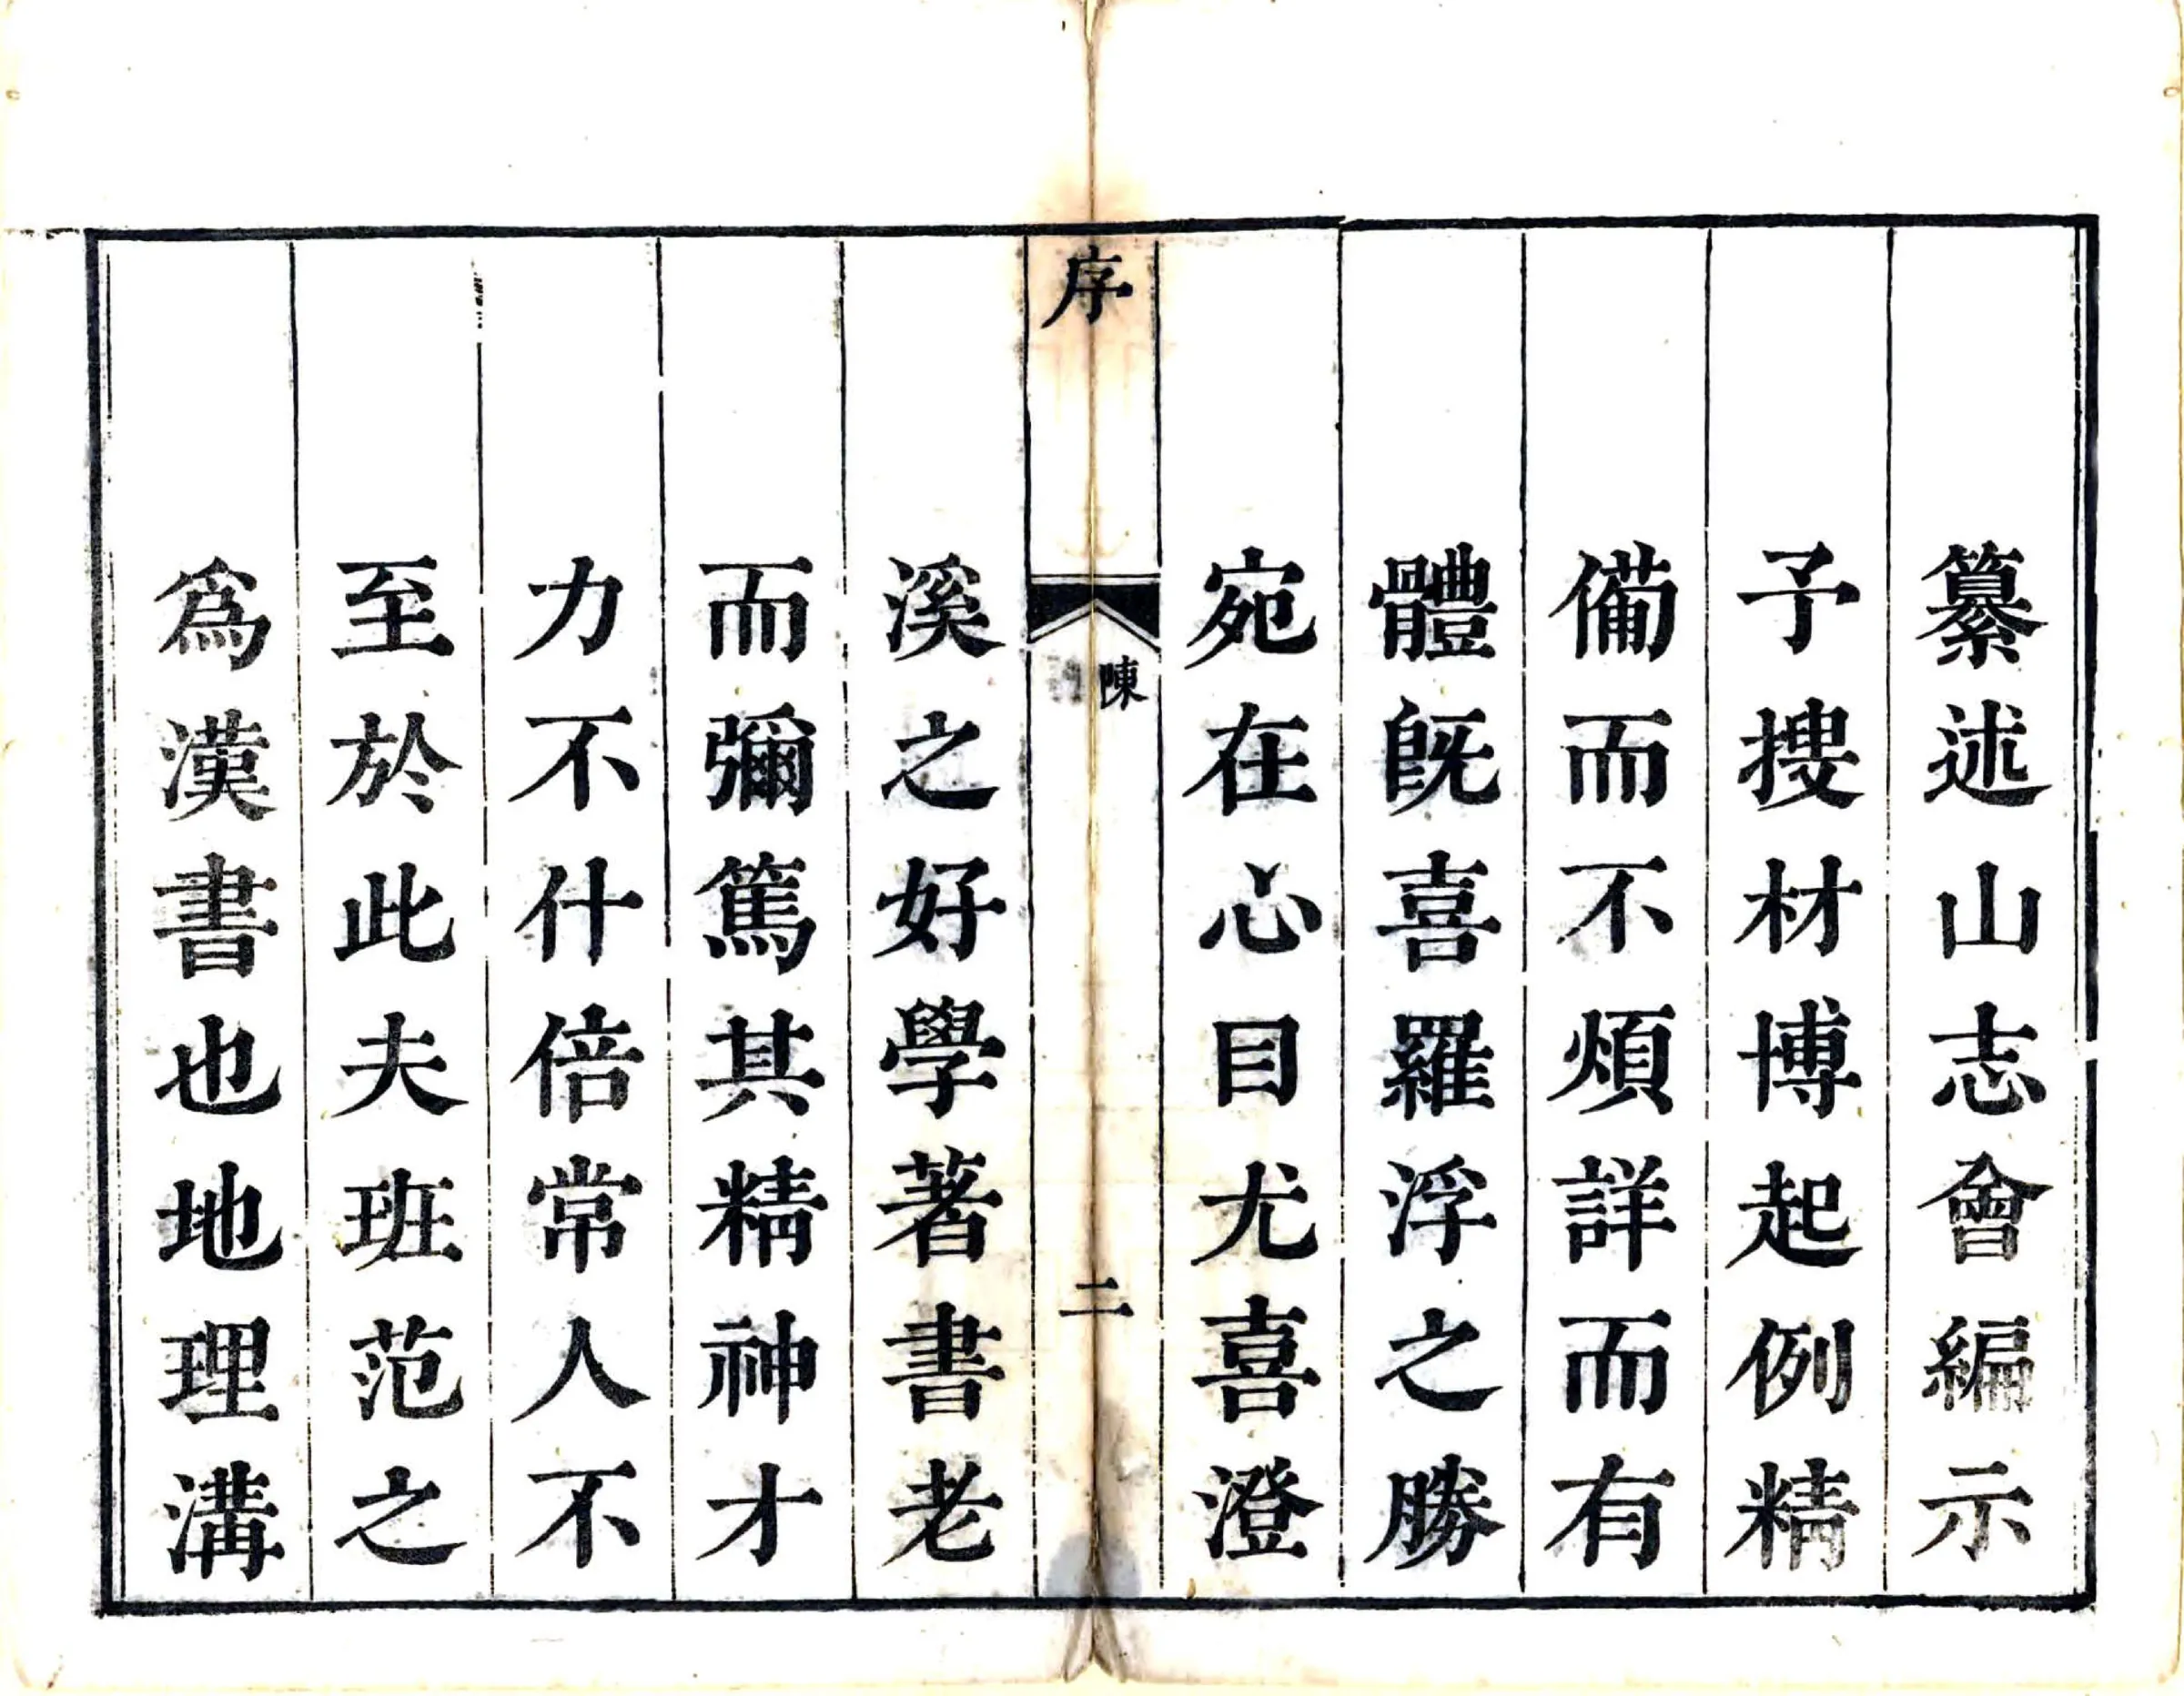 纂述山志會編示
予搜材博起例精
備而不煩詳而有
體旣喜羅浮之勝
宛在心目尤喜澄
序
陳
二
溪之好學著書老
而彌篤其精神才
力不什倍常人不
至於此夫班范之
爲漢書也地理溝